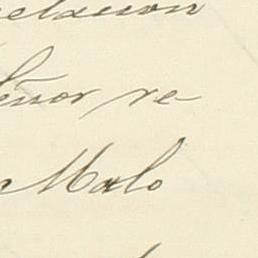 elacion
Señor re-
Malo